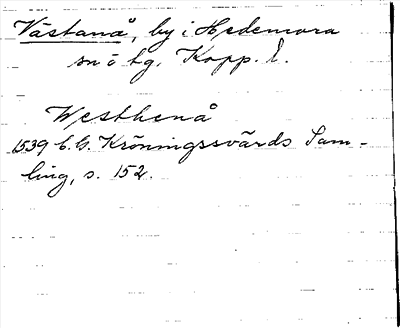 Västanå, by i Hedemora
sn o tg. Kopp. l.
Westhenå
1539 C.G. Kröningssvärds Sam-
ling, s. 152.